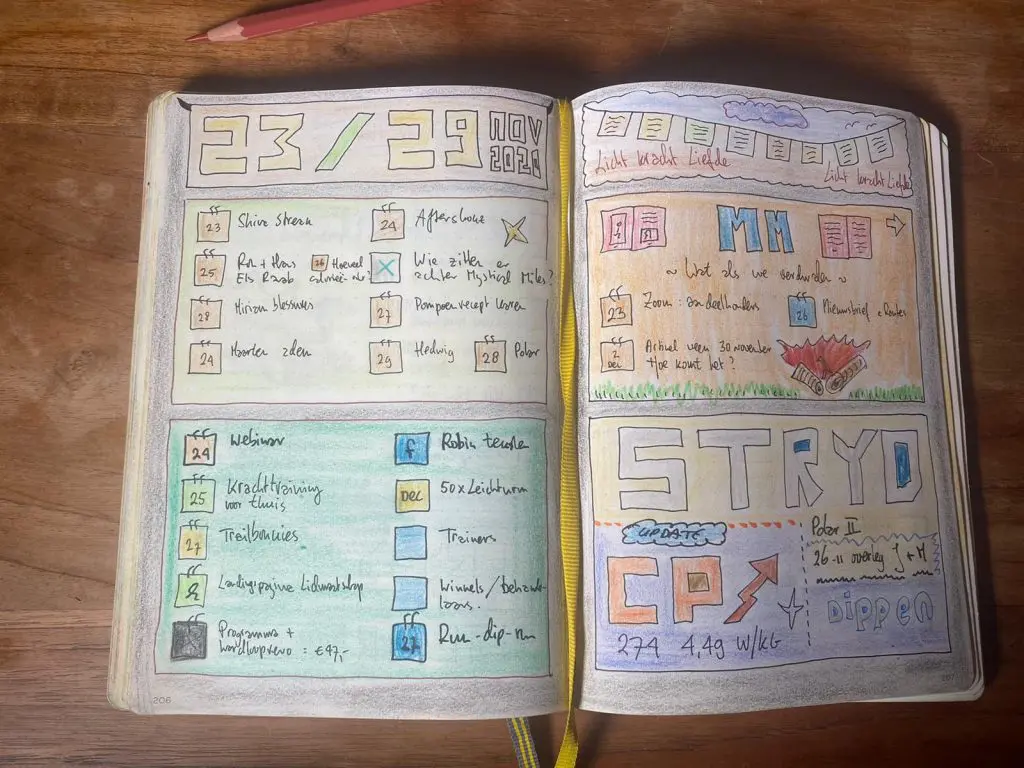 23/29 NOV
2020
23 Shine streak
24 Aftershokz
25 Run + thans
Els Raab
26 Hoeveel
calorieën
X Wie zitten er
achter Mystical Miles?
28 Mirian blessures
27 Pompoenrecept
24 Maarten
29 Hedwig
28 Polar
24 Webinar
f Robin
25 Krachttraining
voor thuis
DEC 50x Leichtturm
27 Trailbunnies
Trainers
Landingspagina Lidmaatschap
Winkels / behande-
laars.
Programma +
= €47,-
27 Run-dip-run
206
Licht kracht Liefde
Licht kracht Liefde
MM
~ Wat als we verdwalen ~
23 Zoom: aandeelhouders
26 Nieuwsbrief + Routes
2
DEC
Actueel 30 november
Hoe komt het?
STRYD
UPDATE
CP
274 4,49 W/KG
Polar II
26-11 overleg J + M
Dippen
207